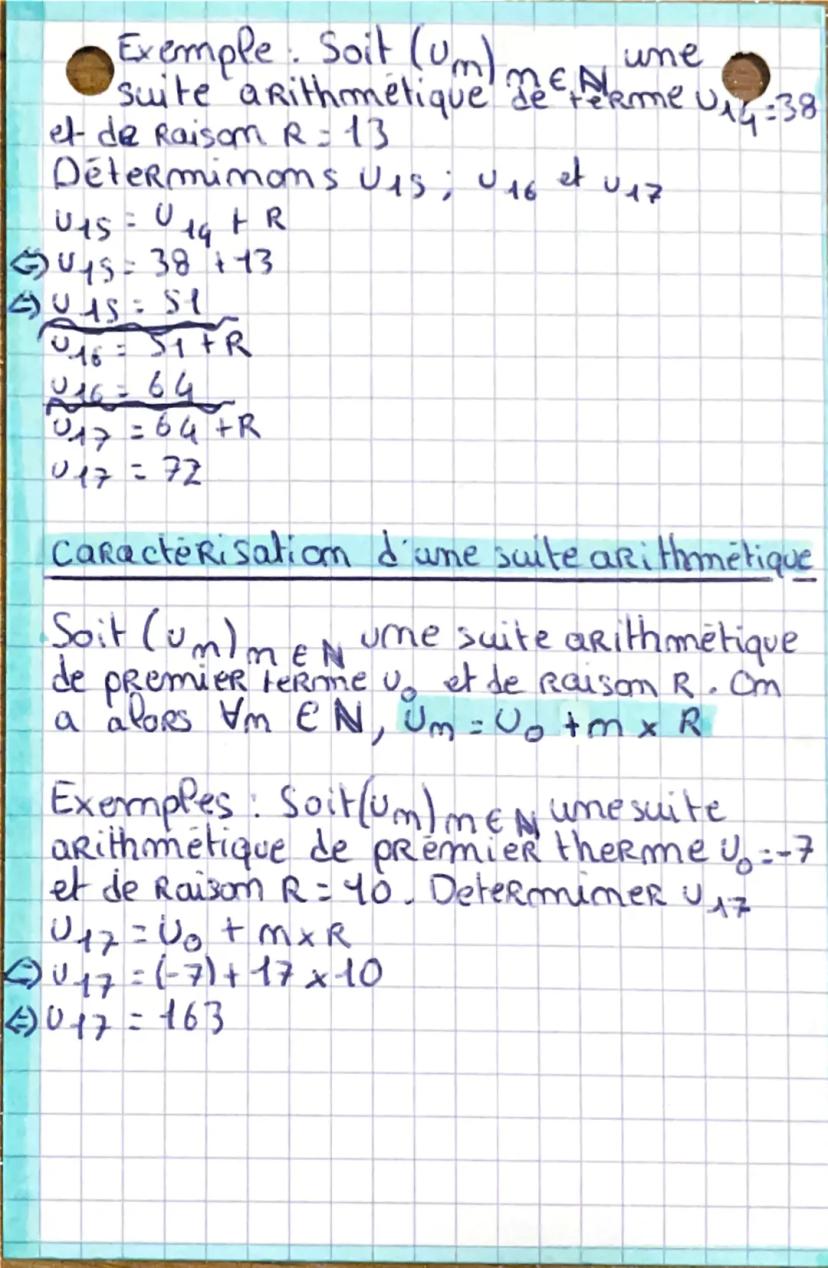 Exemple : Soit (Un) n ∈ ℕ une
suite arithmétique de terme U14 = 38
et de Raison R = 13
Déterminons U15 ; U16 et U17
U15 = U14 + R
⇔ U15 = 38 + 13
⇔ U15 = 51
U16 = 51 + R
U16 = 64
U17 = 64 + R
U17 = 72
Caractérisation d'une suite arithmétique
Soit (Un) n ∈ ℕ une suite arithmétique
de premier terme U0 et de Raison R. On
a alors ∀n ∈ ℕ, Un = U0 + n x R
Exemples : Soit (Un) n ∈ ℕ une suite
arithmétique de prémier therme U0 = -7
et de Raison R = 10. Determiner U17
U17 = U0 + n x R
⇔ U17 = (-7) + 17 x 10
⇔ U17 = 163